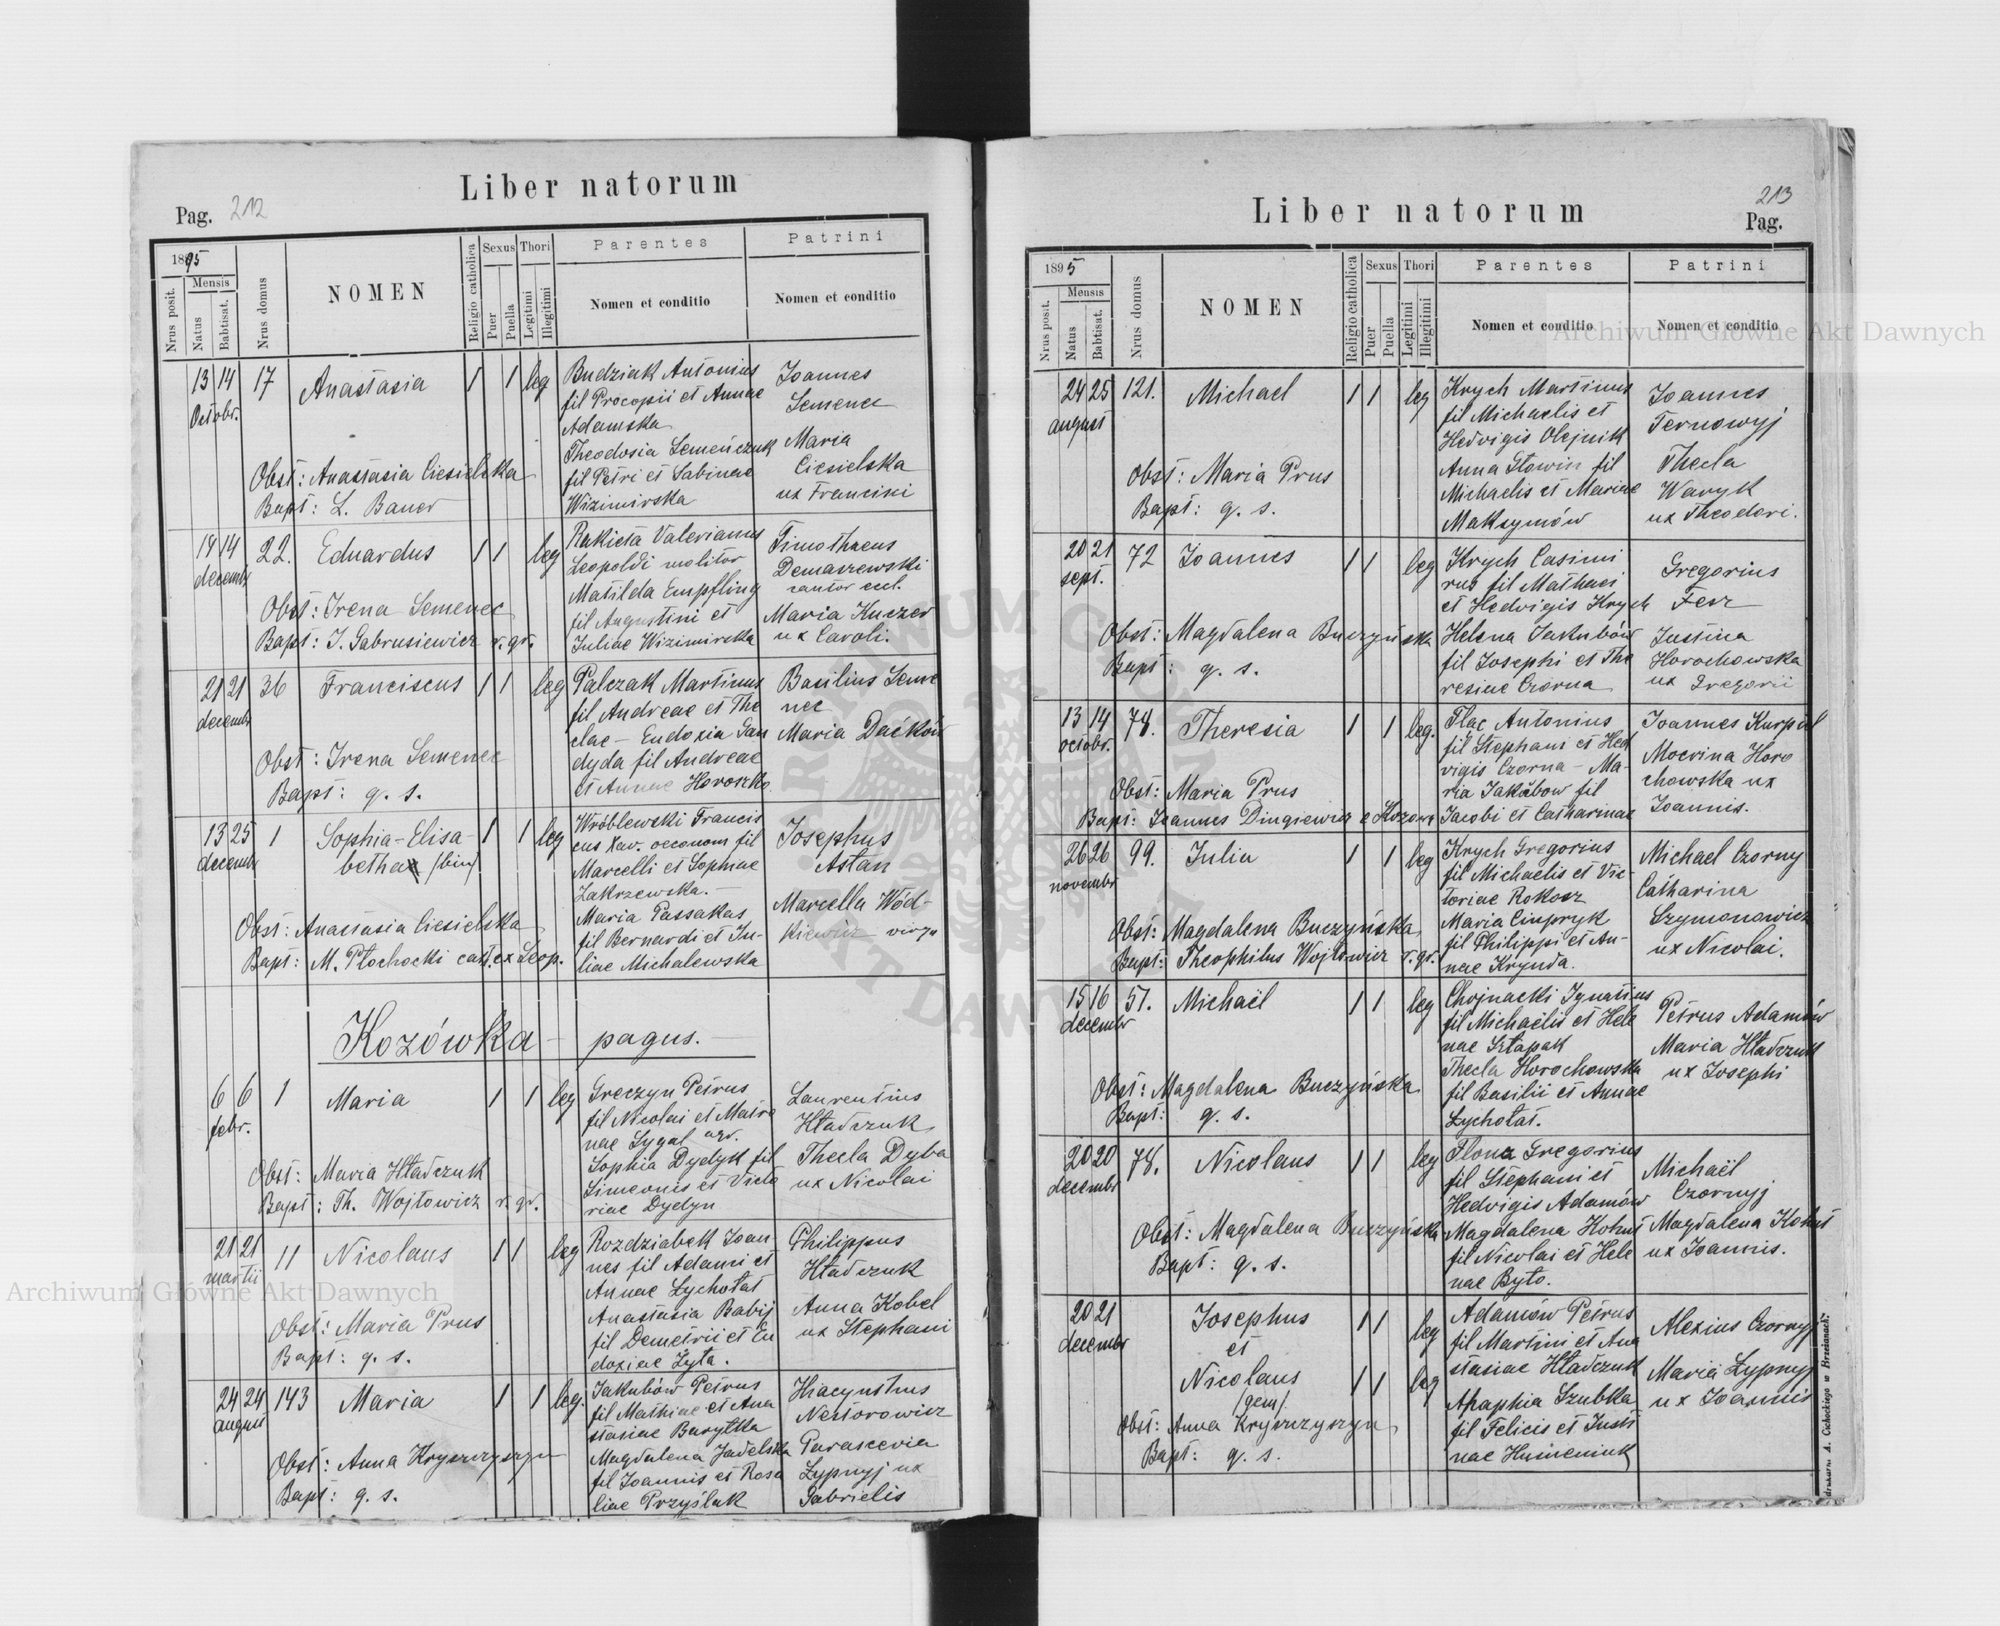 Liber natorum
Pag. 212
1895
Nrus posit.
Mensis
Natus
Babtisat.
Nrus domus
NOMEN
Religio catholica
Sexus
Puer
Puella
Thori
Legitimi
Illegitimi
Parentes
Nomen et conditio
Patrini
Nomen et conditio
13 14 17 Anastasia 1 1 leg
Octobr.
Obst: Anastasia Ciesielska
Bapt: L. Bauer
Budziak Antonius
fil Procopii et Annae
Adamska
Theodosia Semeńczuk
fil Petri et Sabinae
Wizimirska
Joannes
Semenec
Maria
Ciesielska
ux Francisci
14 22. Eduardus 1 1 leg
decembr
Obst: Irena Semenec
Bapt: J. Gabrusiewicz r. gr.
Rakieta Valerianus
Leopoldi molitor
Matilda Empfling
fil Augustini et
Juliae Wizimirska
Timothaeus
Demaszewski
cantor eccl.
Maria Kuczer
ux Caroli.
21 21 36 Franciscus 1 1 leg
decembr
Obst: Irena Semenec
Bapt: q. s.
Palczak Martinus
fil Andreae et The
clae - Eudoxia Gan
dyda fil Andreae
et Annae Horoszko
Basilius Seme
nec
Maria Daćków
13 25 1 Sophia-Elisa- 1 1 leg
decembr betha (bin)
Obst: Anastasia Ciesielska
Bapt: M. Płochocki cat. ex Leop.
Wróblewski Francis
cus Xav. oeconom fil
Marcelli et Sophiae
Zakrzewska. -
Maria Passakas
fil Bernardi et Ju-
liae Michalewska
Josephus
Astan
Marcella Wód-
kiewicz virgo
Kozówka - pagus. -
6 6 1 Maria 1 1 leg
febr.
Obst: Maria Hładczuk
Bapt: Th. Wojtowicz r. gr.
Greczyn Petrus
fil Nicolai et Matro
nae Lygal agr.
Sophia Dydyk fil
Simeonis et Victo
riae Dydyn
Laurentius
Hładczuk
Thecla Dyba
ux Nicolai
21 21 11 Nicolaus 1 1 leg
martii
Obst: Maria Prus
Bapt: q. s.
Rozdziabek Joan
nes fil Adami et
Annae Łychołat
Anastasia Babij
fil Demetrii et Eu
doxiae Żyta.
Philippus
Hładczuk
Anna Kobel
ux Stephani
24 24 143 Maria 1 1 leg.
augusti
Obst: Anna Kryszczyszyn
Bapt: q. s.
Jakubów Petrus
fil Mathiae et Ana
stasiae Baryłka
Magdalena Jadelska
fil Joannis et Rosa
liae Przyślak
Hiacynthus
Nestorowicz
Parascevia
Żypnyj ux
Gabrielis
Liber natorum
213
Pag.
1895
Nrus posit.
Mensis
Natus
Babtisat.
Nrus domus
NOMEN
Religio catholica
Sexus
Puer
Puella
Thori
Legitimi
Illegitimi
Parentes
Nomen et conditio
Patrini
Nomen et conditio
24 25 121. Michael 1 1 leg
august
Obst: Maria Prus
Bapt: q. s.
Krych Martinus
fil Michaelis et
Hedvigis Olejnik
Anna Słowin fil
Michaelis et Mariae
Maksymów
Joannes
Ternowyj
Thecla
Waryk
ux Theodori.
20 21 72 Joannes 1 1 leg
sept.
Obst: Magdalena Buczyńska
Bapt: q. s.
Krych Casimi
rus fil Mathaei
et Hedvigis Krych
Helena Jakubów
fil Josephi et The
resiae Czorna
Gregorius
Fesz
Justina
Horochowska
ux Gregorii
13 14 78. Theresia 1 1 leg.
octobr.
Obst: Maria Prus
Bapt: Joannes Dingiewicz e Kozowa
Flac Antonius
fil Stephani et Hed
vigis Czorna - Ma-
ria Jakubow fil
Jacobi et Catharinae
Joannes Kurpiel
Mocrina Horo
chowska ux
Joannis.
26 26 99. Julia 1 1 leg
novembr
Obst: Magdalena Buczyńska
Bapt: Theophilus Wojtowicz r. gr.
Krych Gregorius
fil Michaelis et Vic
toriae Rokosz
Maria Ciupryk
fil Philippi et An-
nae Krynda.
Michael Czorny
Catharina
Szymonowicz
ux Nicolai.
15 16 57. Michaël 1 1 leg
decembr
Obst: Magdalena Buczyńska
Bapt: q. s.
Chojnacki Ignatius
fil Michaëlis et Hele
nae Sztapak
Thecla Horochowska
fil Basilii et Annae
Łychołat.
Petrus Adamów
Maria Hładczuk
ux Josephi
20 20 78. Nicolaus 1 1 leg
decembr
Obst: Magdalena Buczyńska
Bapt: q. s.
Gregorius
fil Stephani et
Hedvigis Adamów
Magdalena Kohut
fil Nicolai et Hele
nae Byto.
Michaël
Czornyj
Magdalena Kohut
ux Joannis.
20 21 Josephus 1 1 leg
decembr et
Nicolaus 1 1 leg
/gem/.
Obst: Anna Kryszczyszyn
Bapt: q. s.
Adamów Petrus
fil Martini et Ana
stasiae Hładczuk
Ahaphia Szubtka
fil Felicis et Justi
nae Humeniuk
Alexius Czornyj
Maria Żypnyj
ux Joannis
drukarni A. Cichockiego w Brzeżanach.
Archiwum Główne Akt Dawnych
Archiwum Główne Akt Dawnych